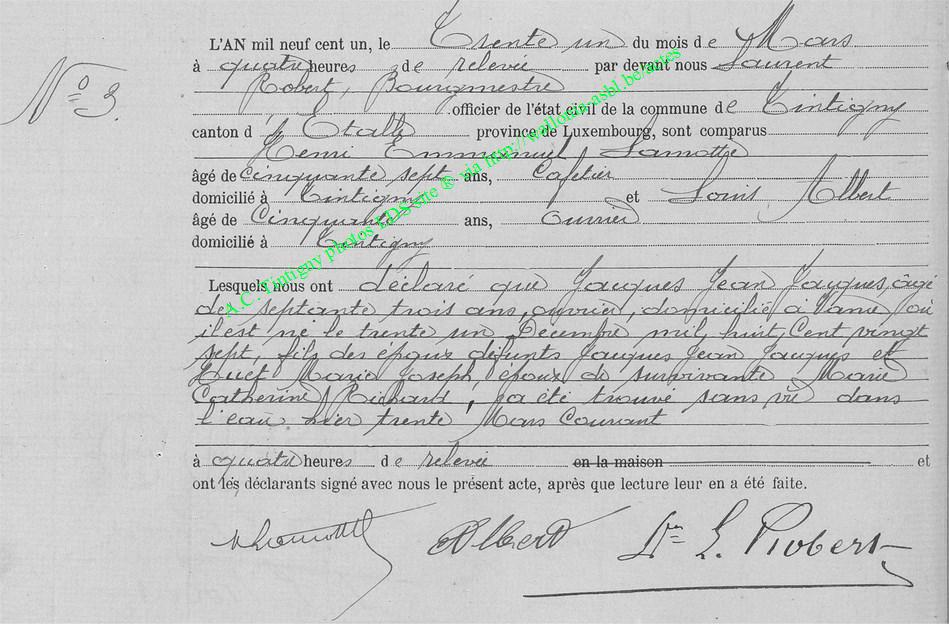 N° 3
L'AN mil neuf cent un, le Trente un du mois de Mars
à quatre heures de relevée par devant nous Laurent
Robert, Bourgmestre
officier de l'état civil de la commune de Tintigny
canton d'Etalle province de Luxembourg, sont comparus
Henri Emmanuel Lamotte
âgé de Cinquante sept ans, Cafetier
domicilié à Tintigny et Louis Albert
âgé de Cinquante ans, Ouvrier
domicilié à Tintigny
Lesquels nous ont déclaré que Jacques Jean Jacques, âgé
de septante trois ans, ouvrier, domicilié à où
il est né le trente un Decembre mil huit Cent vingt
sept, fils des époux défunts Jacques Jean Jacques et
Marie Joseph, époux de survivante Marie
Catherine Richard, a été trouvé sans vie dans
l'eau hier trente Mars Courant
à quatre heures de relevée en la maison et
ont les déclarants signé avec nous le présent acte, après que lecture leur en a été faite.
Albert
L. Robert
A.C. Tintigny photos LDS site ® via http://wallonia-asbl.be/actes